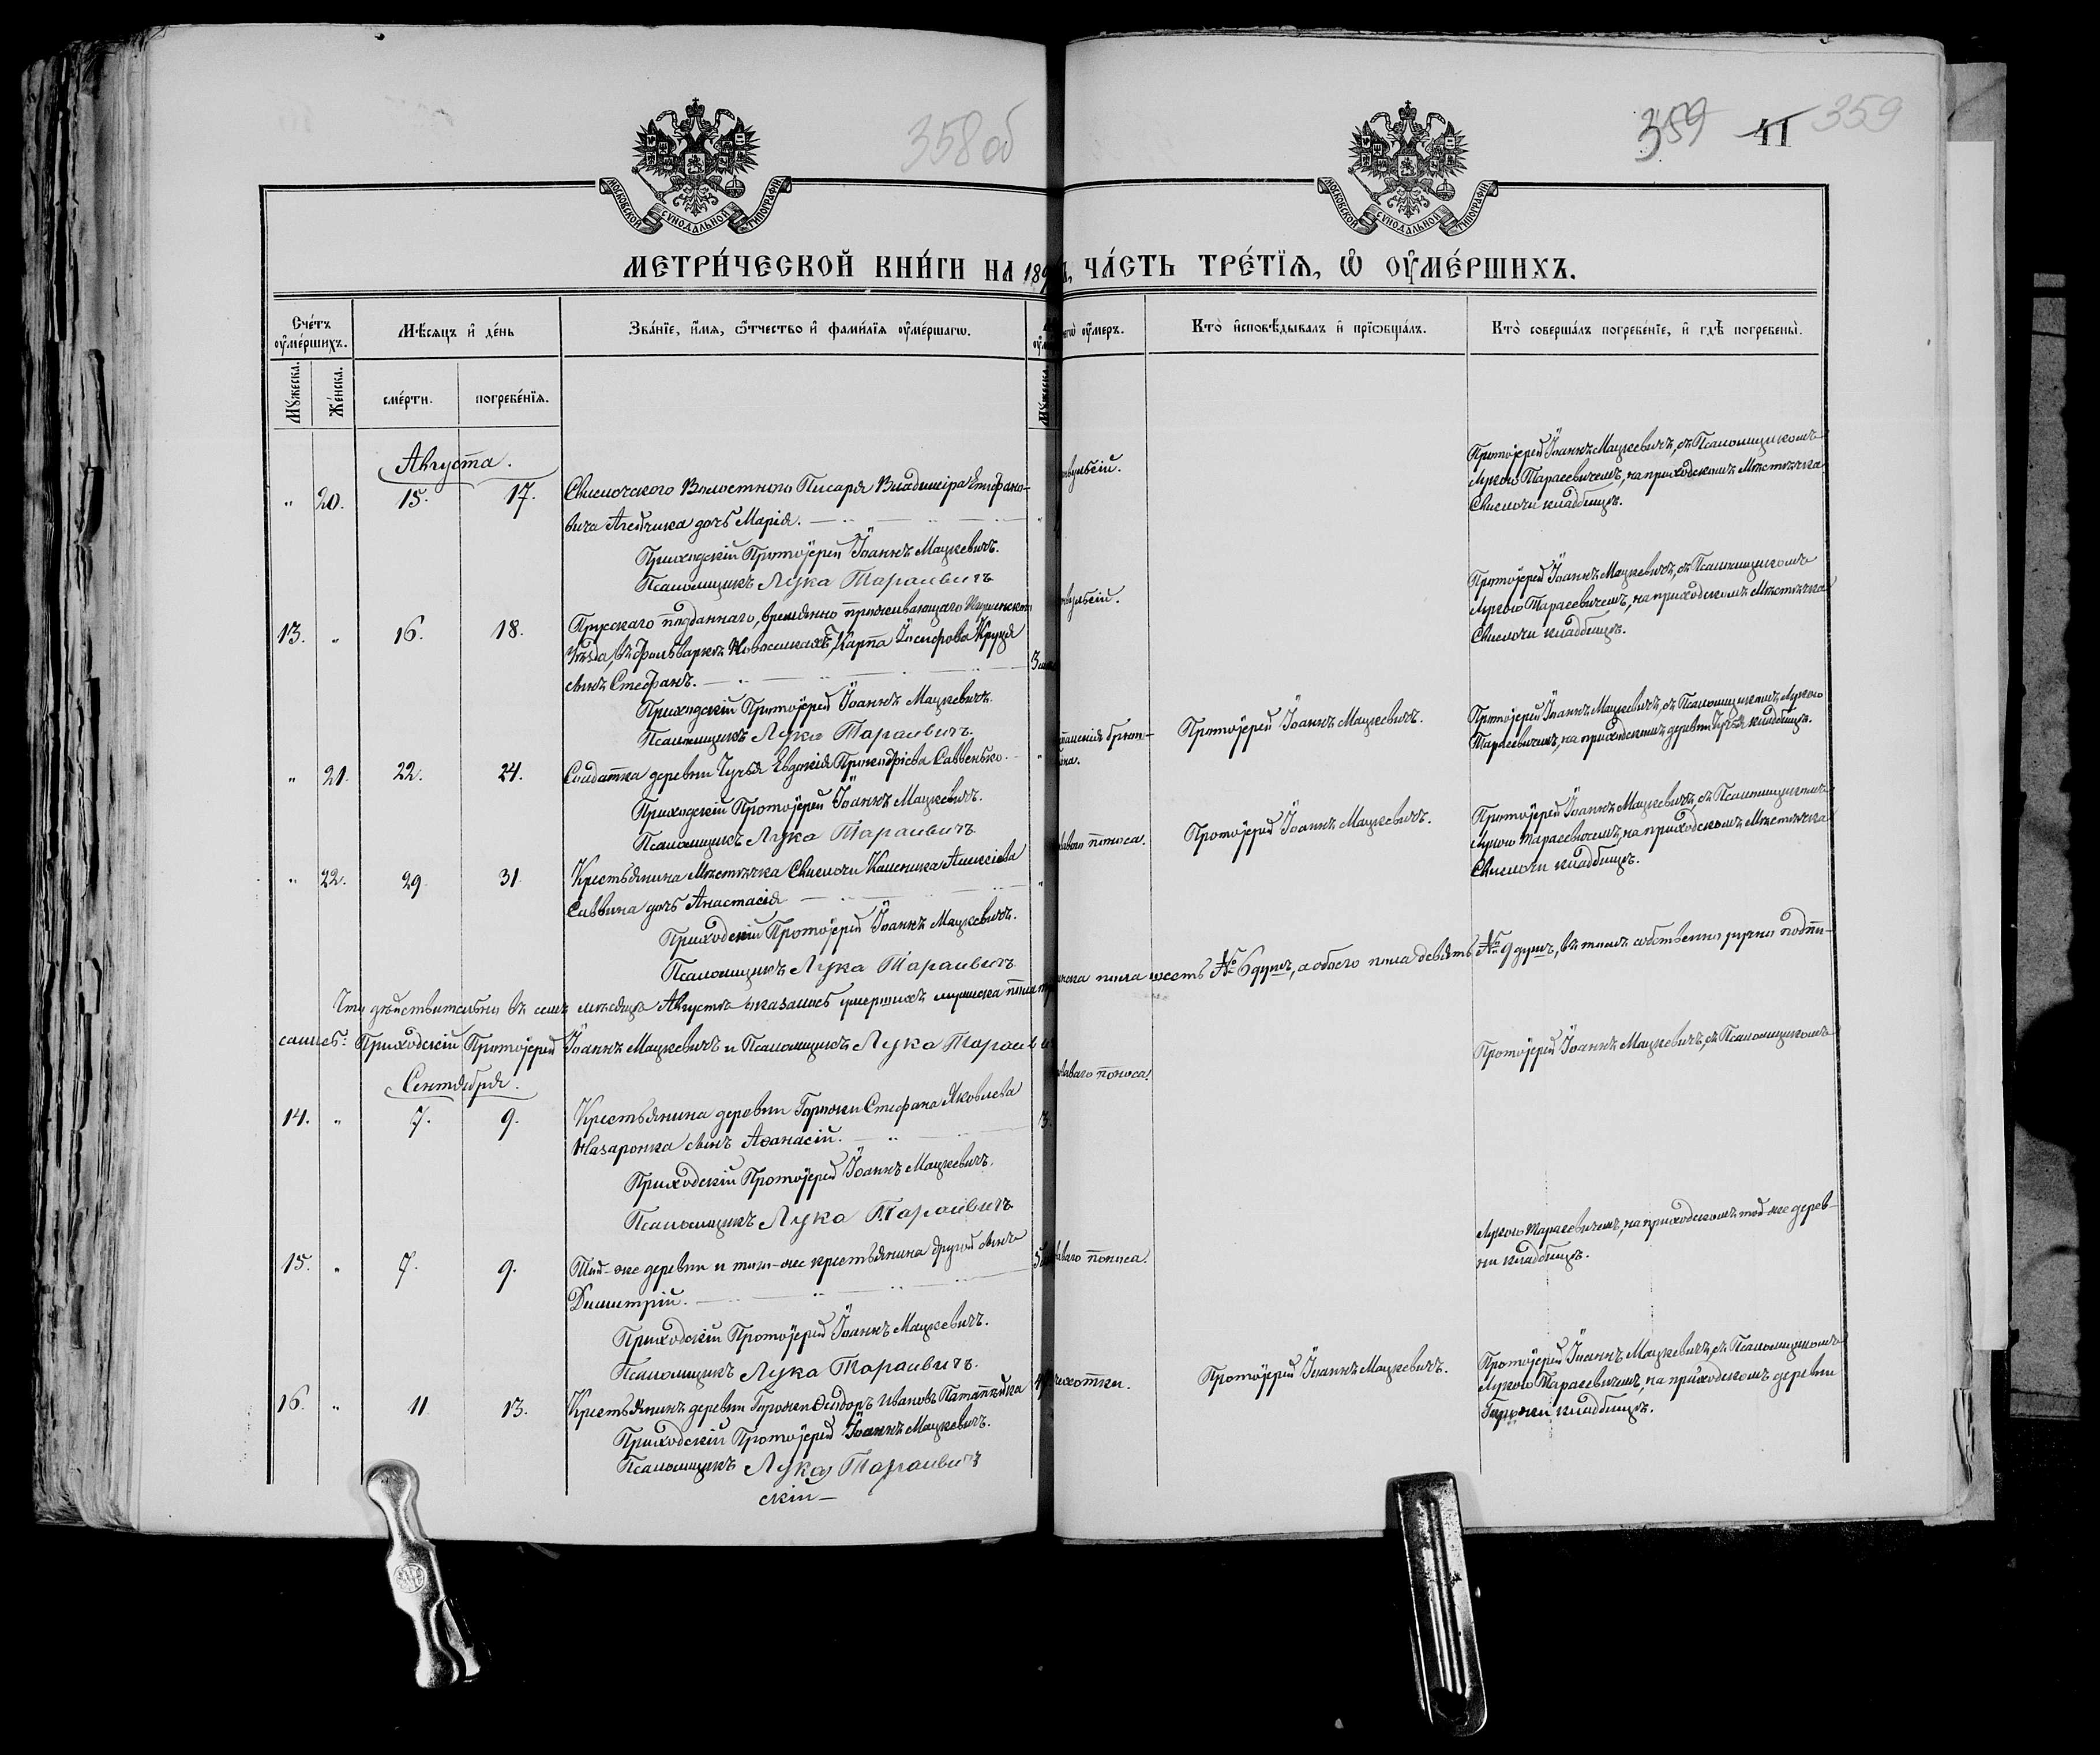 358 об
359 41 359
МОСКОВСКОЙ СѴНОДАЛЬНОЙ ТИПОГРАФІИ
МОСКОВСКОЙ СѴНОДАЛЬНОЙ ТИПОГРАФІИ
МЕТРИ́ЧЕСКОЙ КНИ́ГИ НА 189
ЧА́СТЬ ТРЕ́ТЇѦ, Ѡ҆ ОУ҆МЕ́РШИХЪ.
Сче́тъ оу҆ме́ршихъ.
Мѣ́сяцъ и҆ де́нь
Зва́нїе, и҆́мѧ, ѻ҆́тчество и҆ фами́лїѧ оу҆ме́ршагѡ.
оу҆́меръ.
Кто̀ и҆сповѣ́дывалъ и҆ прїѡбща́лъ.
Кто̀ соверша́лъ погребе́нїе, и҆ гдѣ̀ погребены̀.
Му́жеска.
Же́нска.
сме́рти.
погребе́нїѧ.
Му́жеска.
Августа.
" 20. 15. 17. Свислочского Волостного Писаря Владиміра Епифано-
вича дочь Марія.
Приходскій Протоіерей Іоаннъ Мацкевичъ.
Псаломщикъ Лука Тарасевичъ
Протоіерей Іоаннъ Мацкевичъ, съ Псаломщикомъ
Лукою Тарасевичемъ, на приходскомъ Мѣстечка
Свислочи кладбищѣ.
13. " 16. 18. Прусскаго подданнаго, временно проживающаго Игуменскаго
Уѣзда, въ фольваркѣ Карпа Іосифова
сынъ Стефанъ.
Приходскій Протоіерей Іоаннъ Мацкевичъ.
Псаломщикъ Лука Тарасевичъ.
Протоіерей Іоаннъ Мацкевичъ, съ Псаломщикомъ
Лукою Тарасевичемъ, на приходскомъ Мѣстечка
Свислочи кладбищѣ.
" 21. 22. 24. Солдатка деревни Евдокія Саввенько.
Приходскій Протоіерей Іоаннъ Мацкевичъ.
Псаломщикъ Лука Тарасевичъ
Протоіерей Іоаннъ Мацкевичъ.
Протоіерей Іоаннъ Мацкевичъ, съ Псаломщикомъ Лукою
Тарасевичемъ, на приходскомъ деревни кладбищѣ.
" 22. 29. 31. Крестьянина Мѣстечка Свислочи Алексіева
Саввина дочь Анастасія
Приходскій Протоіерей Іоаннъ Мацкевичъ.
Псаломщикъ Лука Тарасевичъ
поноса.
Протоіерей Іоаннъ Мацкевичъ.
Протоіерей Іоаннъ Мацкевичъ, съ Псаломщикомъ
Лукою Тарасевичемъ, на приходскомъ Мѣстечка
Свислочи кладбищѣ.
Что дѣйствительно въ семъ мѣсяцѣ Августѣ оказалось умершихъ мужеска пола пола шесть № 6 душъ, а обоего пола девять № 9 душъ, въ томъ собственноручно подпи-
сались: Приходскій Протоіерей Іоаннъ Мацкевичъ и Псаломщикъ Лука
Сентября.
14. " 7. 9. Крестьянина деревни Стефана Яковлева
Назаронка сынъ Аѳанасій. 3.
Приходскій Протоіерей Іоаннъ Мацкевичъ.
Псаломщикъ Лука Тарасевичъ
поноса.
Протоіерей Іоаннъ Мацкевичъ, съ Псаломщикомъ
15. " 7. 9. Той-же деревни и того-же крестьянина другой сынъ
Димитрій.
Приходскій Протоіерей Іоаннъ Мацкевичъ.
Псаломщикъ Лука Тарасевичъ.
поноса.
Лукою Тарасевичемъ, на приходскомъ той-же дерев-
ни кладбищѣ.
16. " 11. 13. Крестьянинъ деревни Ѳеодоръ Ивановъ
Приходскій Протоіерей Іоаннъ Мацкевичъ.
Псаломщикъ Лука Тарасевичъ
скій
Протоіерей Іоаннъ Мацкевичъ.
Протоіерей Іоаннъ Мацкевичъ, съ Псаломщикомъ
Лукою Тарасевичемъ, на приходскомъ деревни
кладбищѣ.